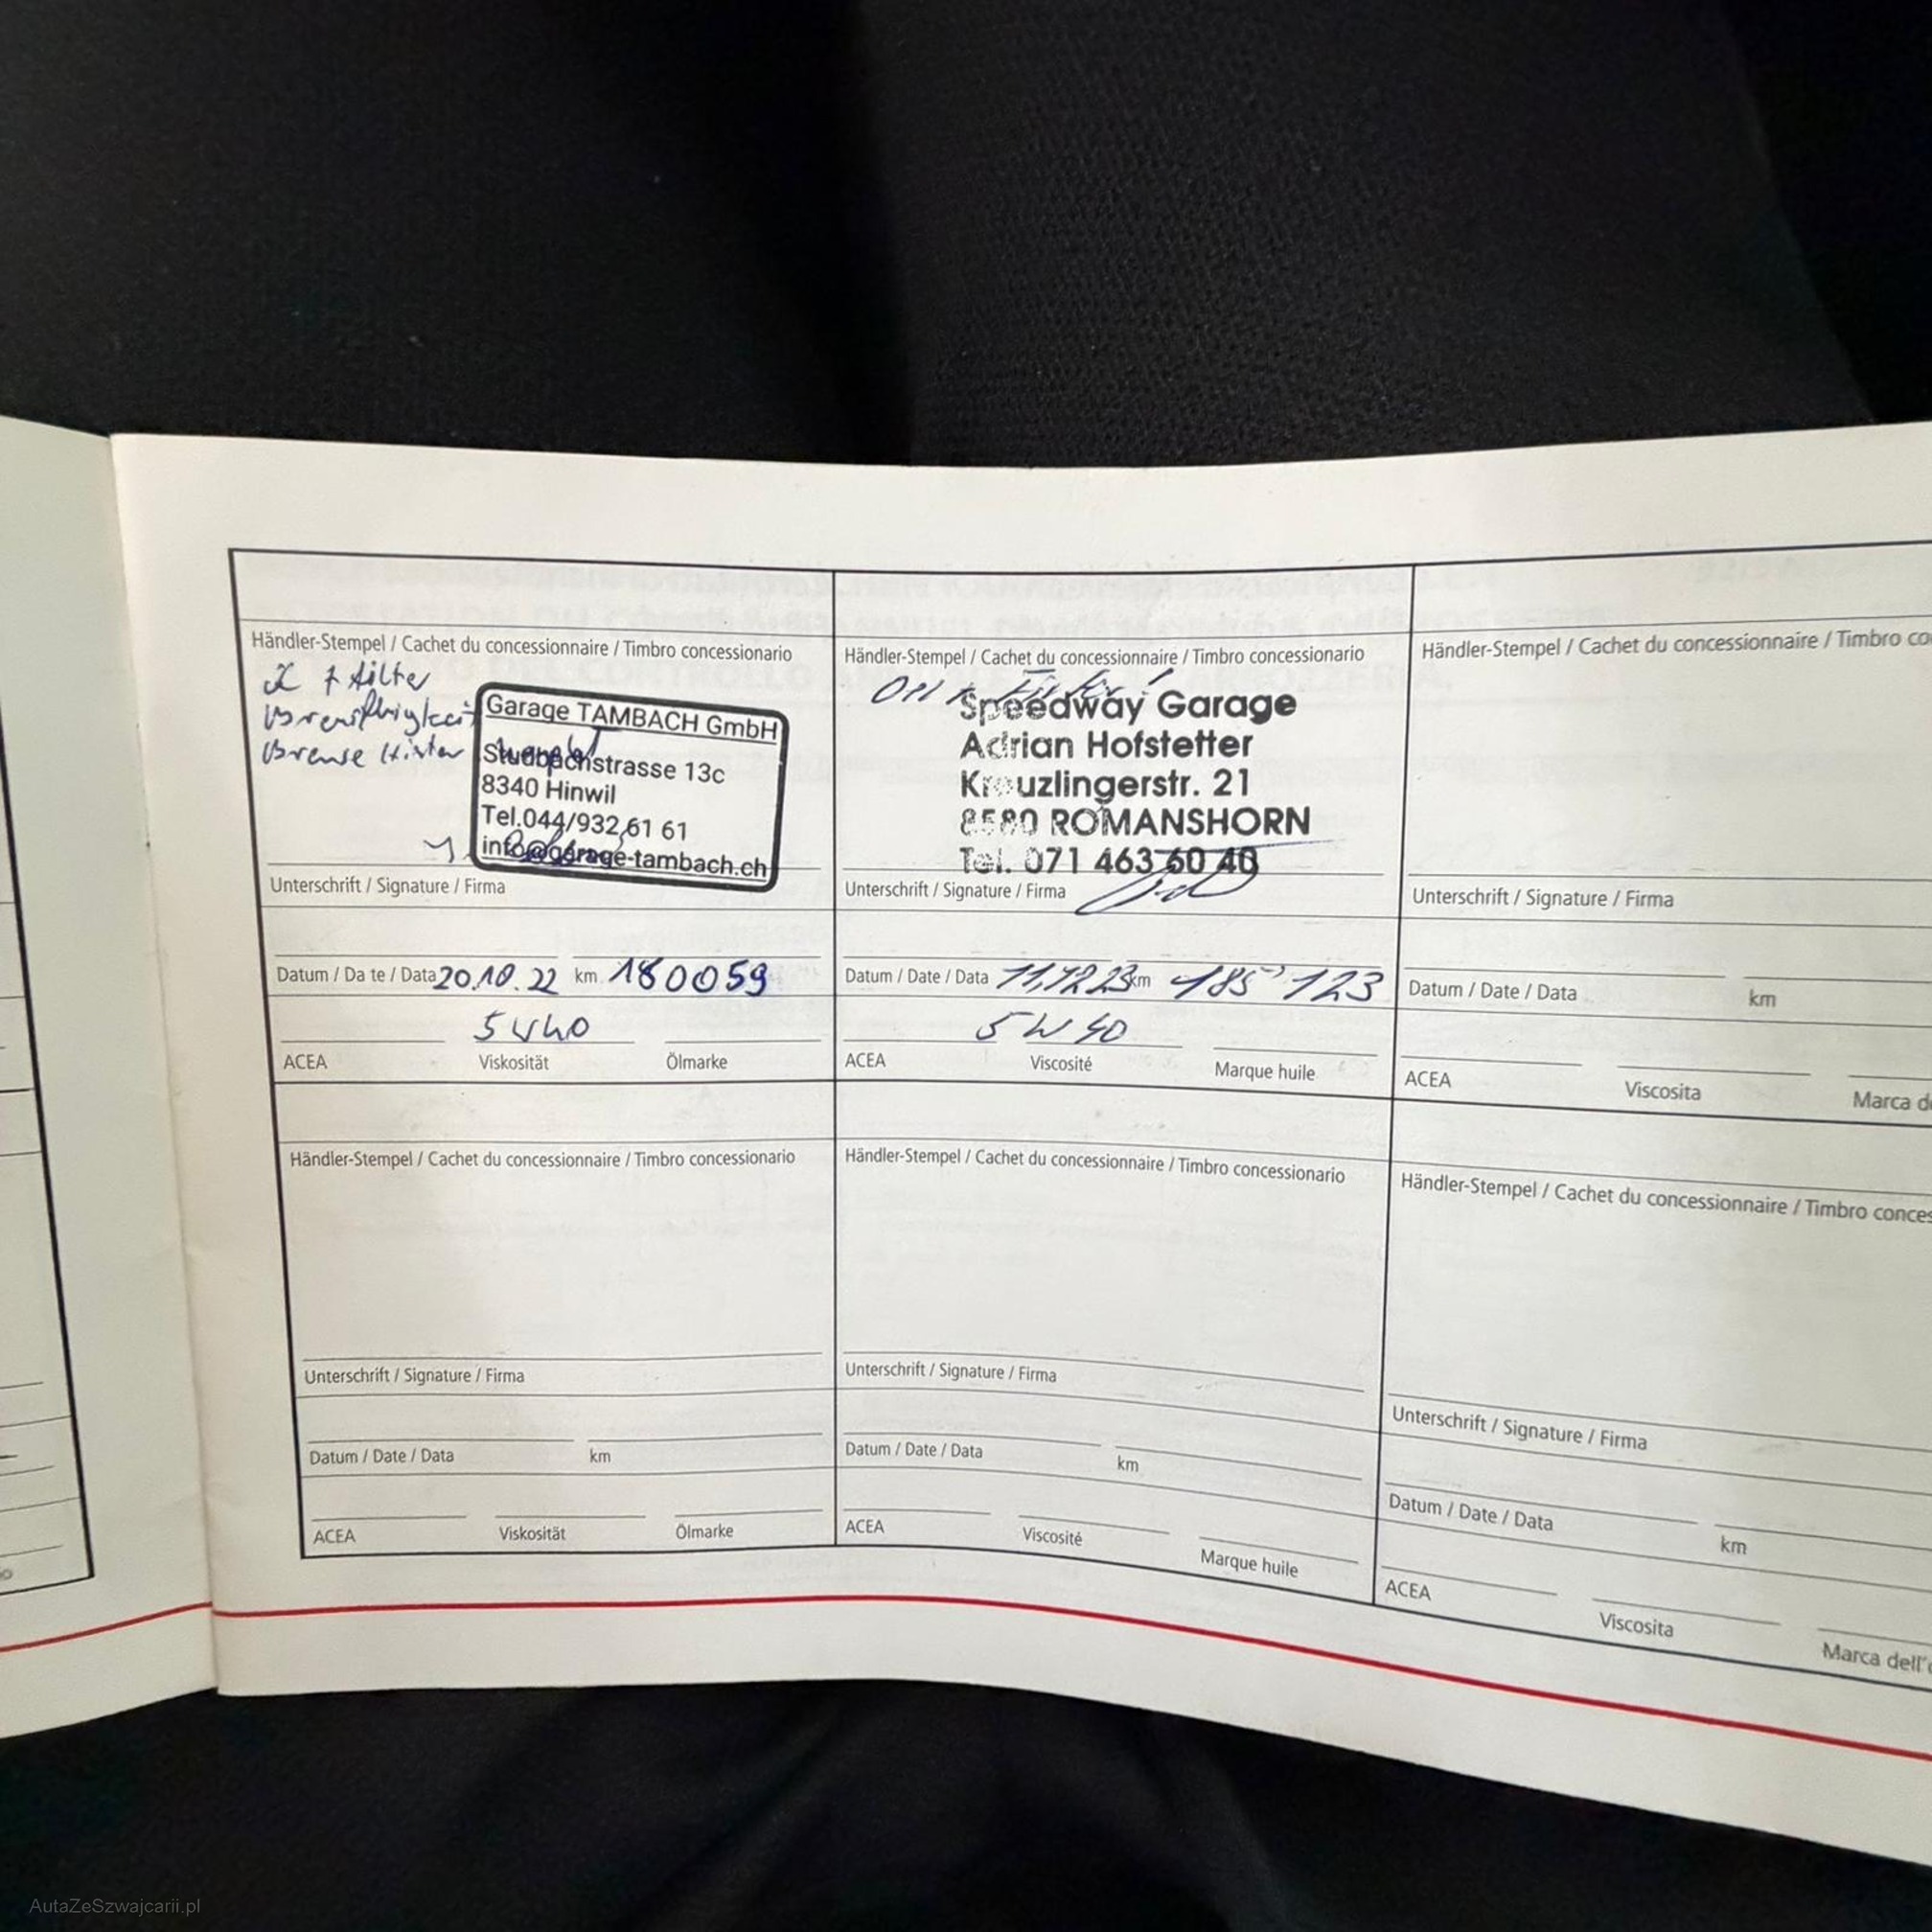 Händler-Stempel / Cachet du concessionnaire / Timbro concessionario
Filter
Bremsflüssigkeit
Bremse Hinten
Garage TAMBACH GmbH
Stuebachstrasse 13c
8340 Hinwil
Tel.044/932 61 61
info@garage-tambach.ch
Unterschrift / Signature / Firma
Datum / Da te / Data 20.10.22 km 180059
5W40
ACEA Viskosität Ölmarke
Händler-Stempel / Cachet du concessionnaire / Timbro concessionario
Speedway Garage
Adrian Hofstetter
Kreuzlingerstr. 21
8580 ROMANSHORN
Tel. 071 463 60 40
Unterschrift / Signature / Firma
Datum / Date / Data 11,12 23 km 185'123
5W40
ACEA Viscosité Marque huile
Händler-Stempel / Cachet du concessionnaire / Timbro co
Unterschrift / Signature / Firma
Datum / Date / Data km
ACEA Viscosita Marca d
Händler-Stempel / Cachet du concessionnaire / Timbro concessionario
Unterschrift / Signature / Firma
Datum / Date / Data km
ACEA Viskosität Ölmarke
Händler-Stempel / Cachet du concessionnaire / Timbro concessionario
Unterschrift / Signature / Firma
Datum / Date / Data km
ACEA Viscosité Marque huile
Händler-Stempel / Cachet du concessionnaire / Timbro conces
Unterschrift / Signature / Firma
Datum / Date / Data km
ACEA Viscosita Marca dell'
AutaZeSzwajcarii.pl